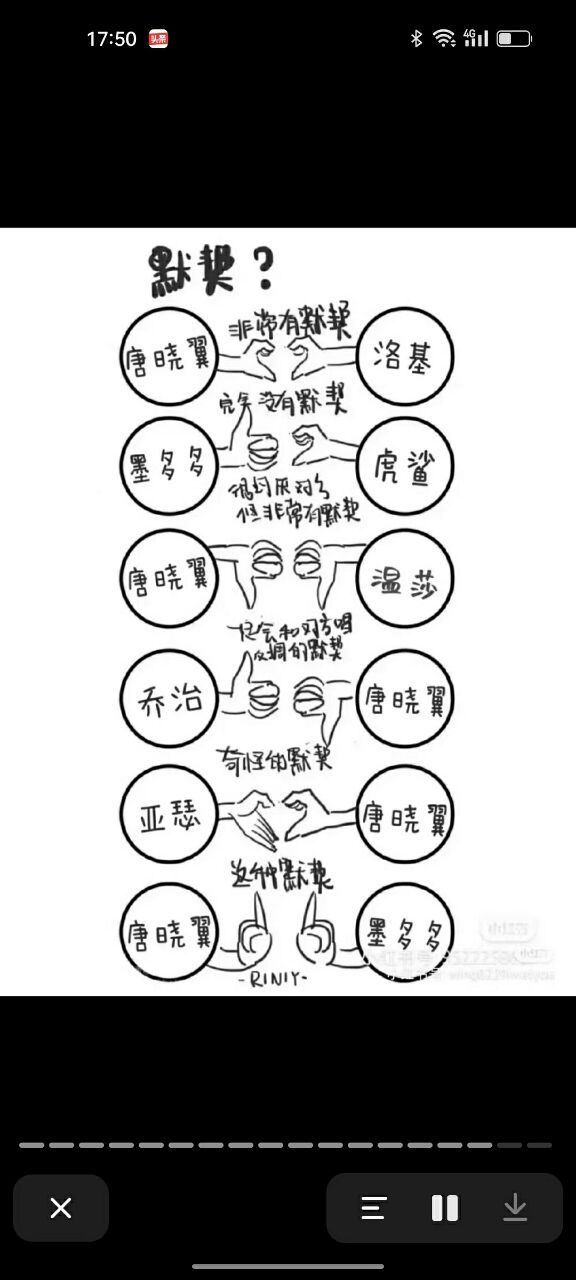 17:50 头条 4G
默契？
非常有默契
唐晓翼 洛基
完全没有默契
墨多多 虎鲨
很讨厌对方
但非常有默契
唐晓翼 温莎
总会和对方唱
反调的默契
乔治 唐晓翼
奇怪的默契
亚瑟 唐晓翼
这种默契
唐晓翼 墨多多
-RINIY-
小红书